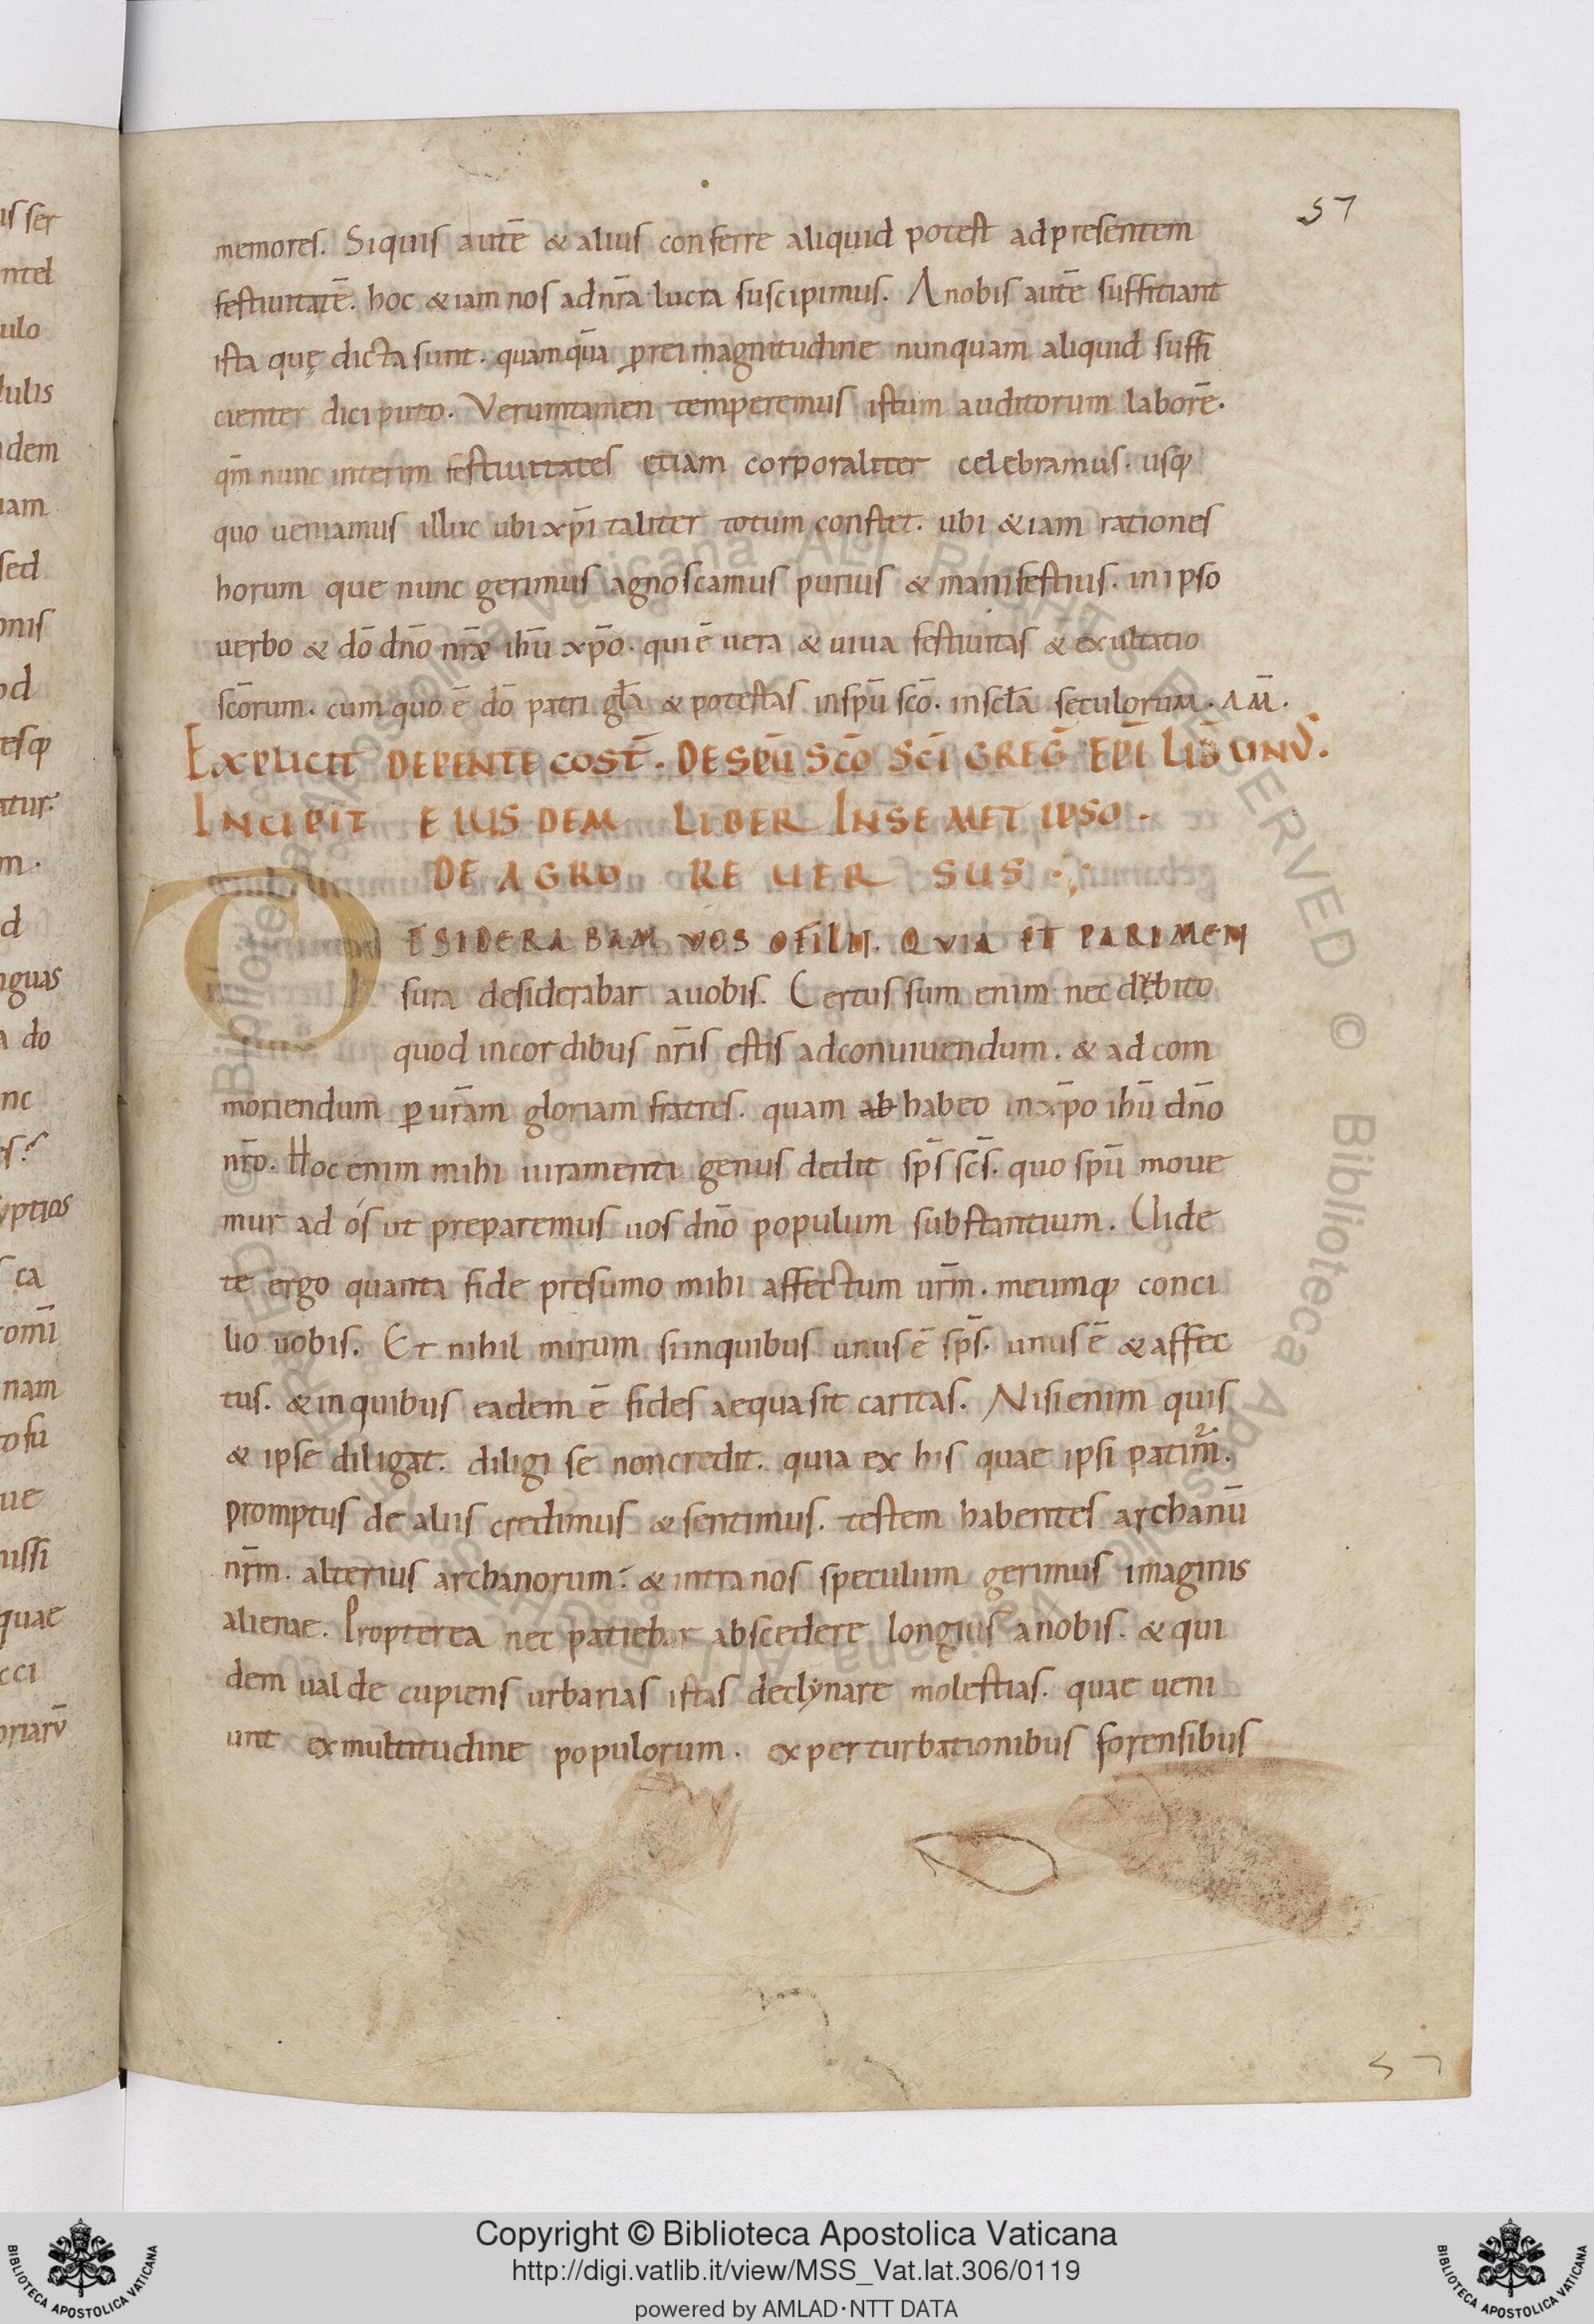 57
memores. Siquis autē & alius conferre aliquid potest adpresentem
festiuitatē. hoc &iam nos adnr̄a lucra suscipimus. Anobis autē suffitiant
ista quę dicta sunt. quamquā ꝓrei magnitudine nunquam aliquid suffi
cienter dici puto. Veruntamen temperemus istum auditorum laborē.
qm̄ nunc interim festiuitates etiam corporaliter celebramus. usq;
quo ueniamus illuc ubi xp̄italiter totum constet. ubi &iam rationes
horum que nunc gerimus agnoscamus purius & manifestius. inipso
uerbo & dō dn̄o nr̄o ihū xp̄o. qui ē uera & uiua festiuitas & exultatio
sc̄orum. cum quo ē dō patri gl̄a & potestas inspū scō. inscl̄a seculorum. AM̄.
EXPLICIT DEPENTECOST̄. DESPŪ SCŌ SCĪ GREḠ EPĪ LIB̄ UNV̄.
INCIPIT EIUSDEM LIBER INSEMET IPSO.
DE AGRO REUERSUS.
DESIDERABAM VOS OFILII. QVIA ET PARIMEN
sura desiderabar auobis. Certus sum enim nec dębito
quod incordibus nr̄is estis adconuiuendum. & ad com
moriendum ꝑ ur̄am gloriam fratres. quam ab habeo inxp̄o ihū dn̄o
nr̄o. Hoc enim mihi iuramenti genus dedit sp̄s sc̄s. quo spū moue
mur ad ós ut preparemus uos dn̄o populum substantium. Uide
te ergo quanta fide presumo mihi affectum ur̄m. meumq; conci
lio uobis. Et nihil mirum siinquibus unus ē sp̄s. unus ē & affec
tus. & inquibus eadem ē fides aequasit caritas. Nisi enim quis
& ipse diligat. diligi se non credit. quia ex his quae ipsi patim̃.
promptus de aliis credimus & sentimus. testem habentes archanū
nr̄m. alterius archanorum. & intra nos speculum gerimus imaginis
alienae. Propterea nec patiebar abscedere longius anobis. & qui
dem ualde cupiens urbarias istas declynare molestias. quae ueni
unt ex multitudine populorum. ex perturbationibus forensibus
57
Copyright © Biblioteca Apostolica Vaticana
http://digi.vatlib.it/view/MSS_Vat.lat.306/0119
powered by AMLAD·NTT DATA